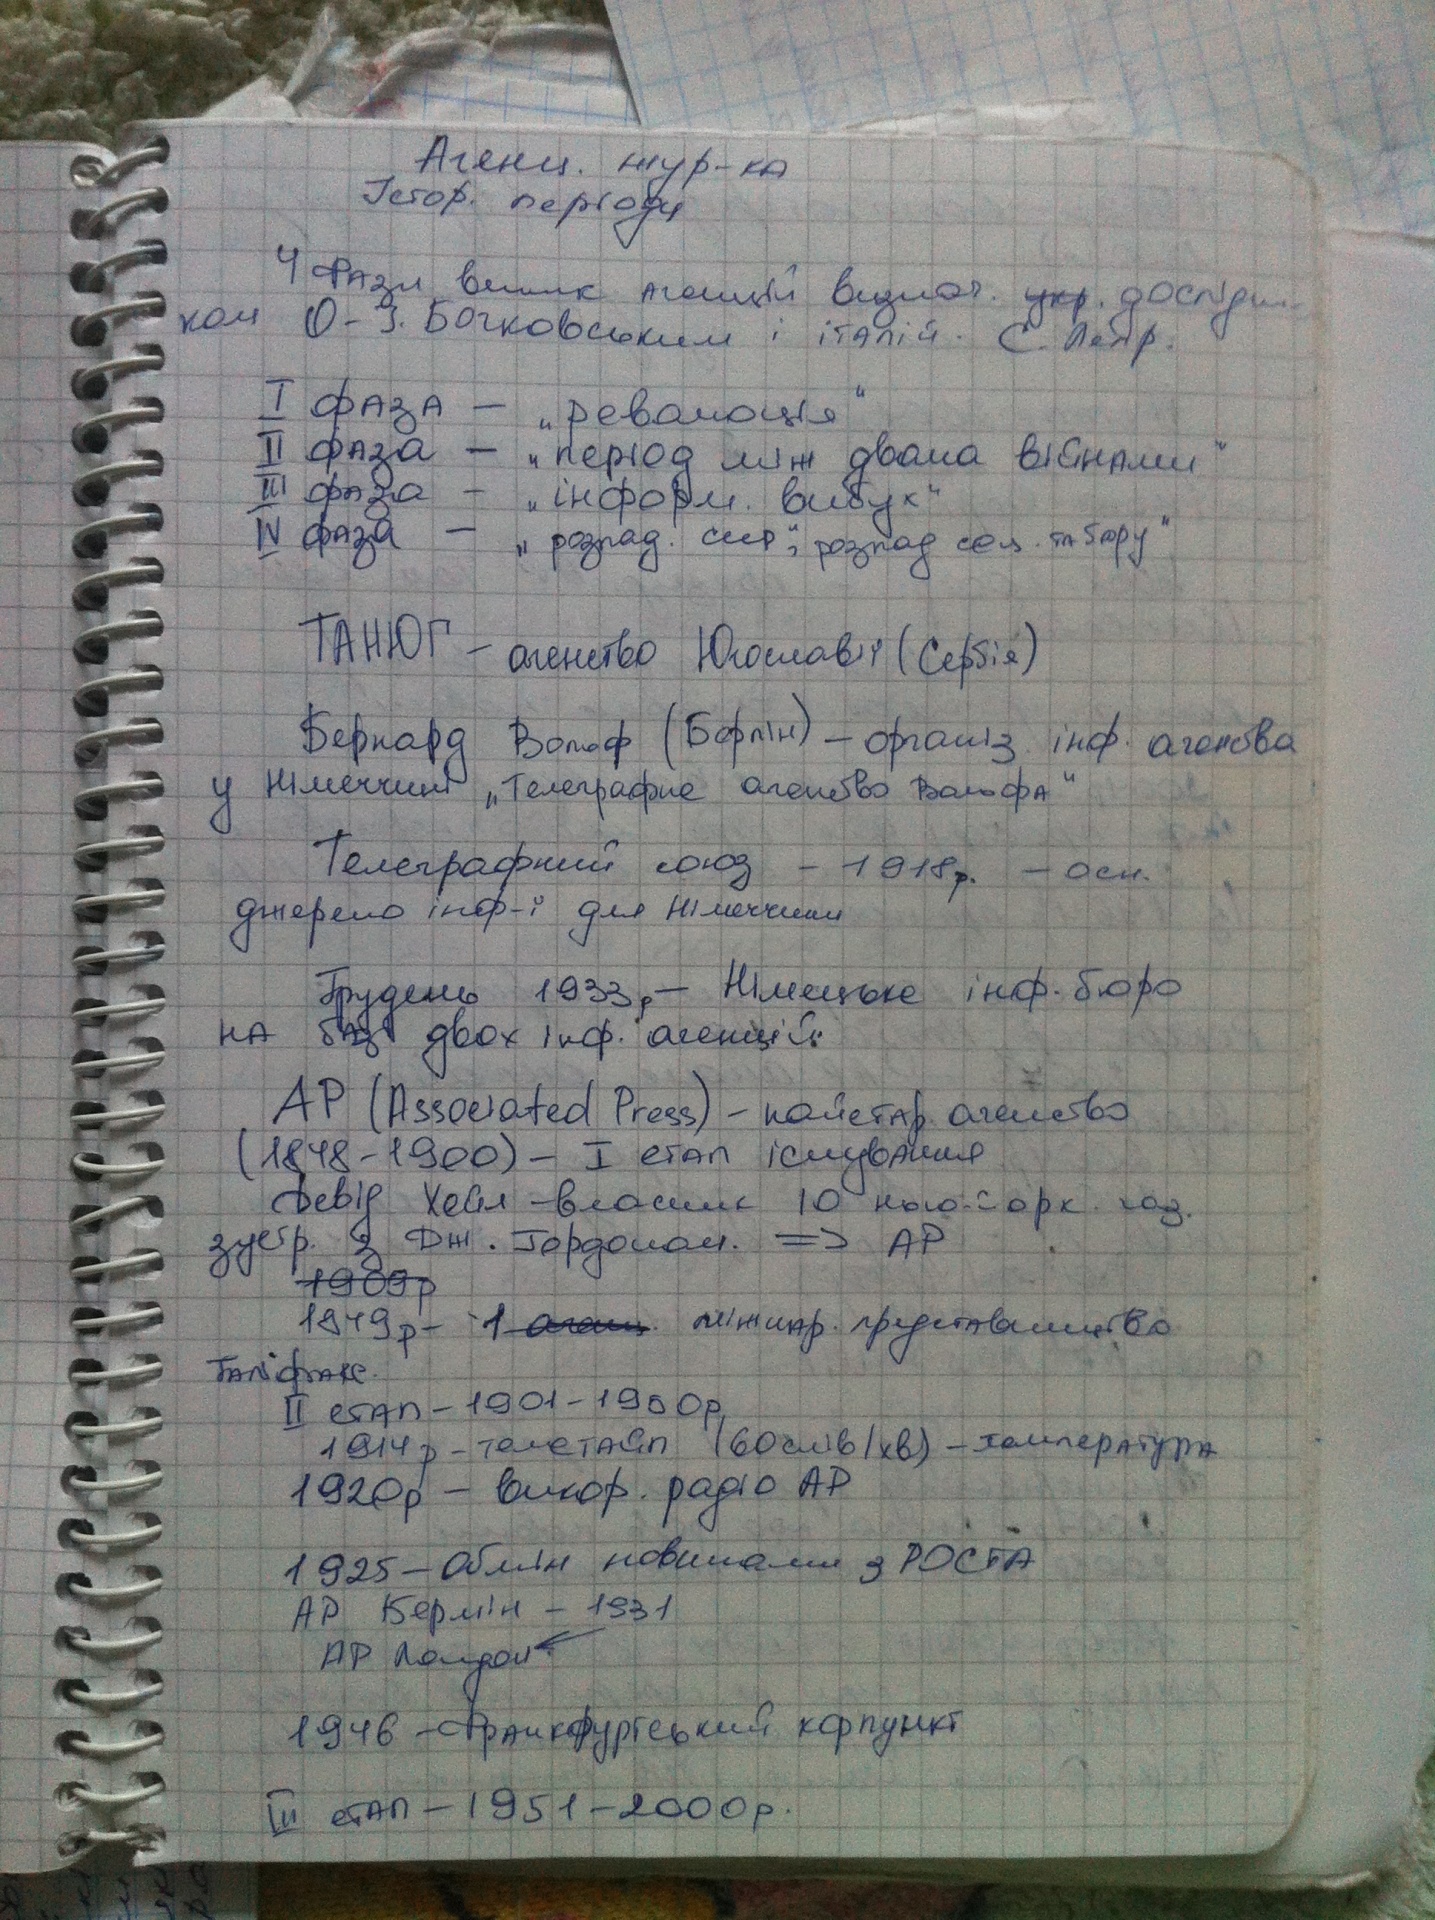 Агенц. жур-ка
Істор. періоди
4 Фази виник агенцій визнач. укр. дослідни-
ком О-І. Бочковським і італій. С. Лепр.
I фаза – „революція"
II фаза – „період між двома війнами"
III фаза – „інформ. вибух"
IV фаза – „розпад. сил", розпад соц. табору"
ТАНЮГ – агенство Югославії (Сербія)
Бернард Вольф (Берлін) – організ інф. агенства
у Німеччині „Телеграфне агенство Вольфа"
Телеграфний союз – 1918р. – осн.
джерело інф-ї для Німеччини
Грудень 1933р – Німецьке інф. бюро
на базі двох інф. агенцій:
AP (Associated Press) – найстар. агенство
(1848-1900) – I етап існування
Девід Хейл – власник 10 нью-йорк. газ.
зустр. з Дж. Гордоном. => AP
1909р
1849р – 1 агенц. міжнар. представництво
Галіфакс.
II етап – 1901-1950р
1914р – телетайп (60 слів/хв) – температура
1920р – викор. радіо AP
1925 – Обмін новинами з РОСТА
AP Берлін – 1931
AP Лондон
1946 – Франкфуртський корпункт
III етап – 1951-2000р.